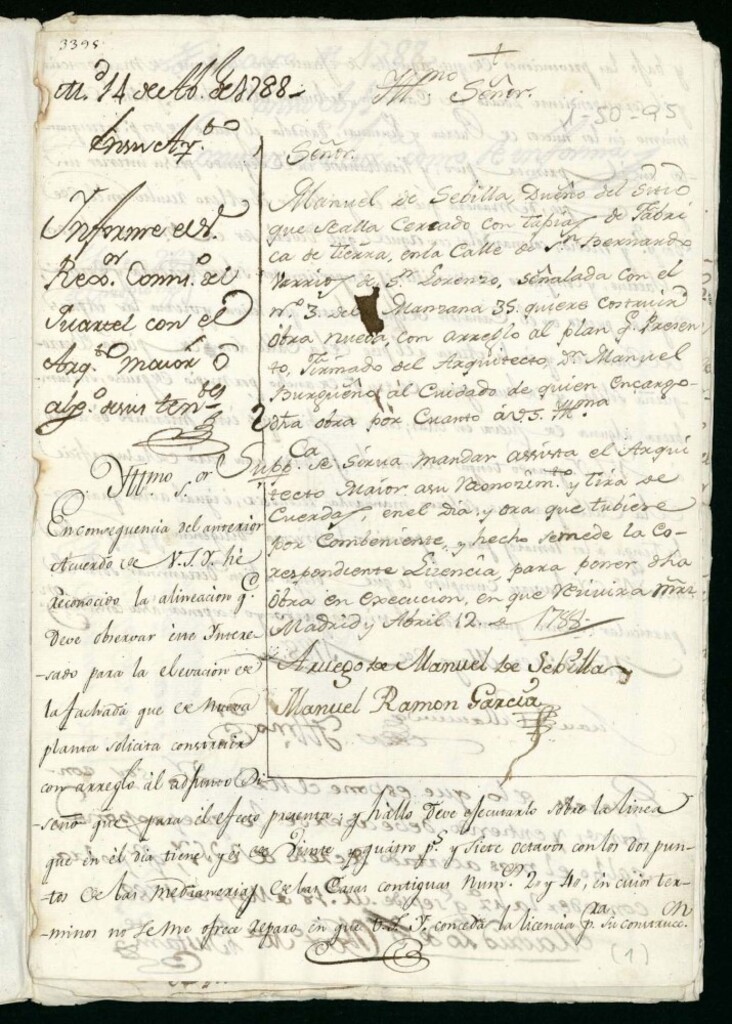 3395
M.d 14 de Ab. de 1788
En su Ay.to
Informe el S.r
Rex.or Comis.o del
Quartel con el
Arq.to maior ò
alg.o de sus ten.tes
+
Ill.mo Señor.
1-50-95
Señor.
Manuel de Sebilla, Dueño del Sitio
que se alla Cercado con tapias de Fabri
ca de tierra, en la Calle de S.n Bernardo
Varrio de S.n Lorenzo, señalada con el
n.o 3. de Manzana 35. quiere costruir
obra nueva, con arreglo al plan q.e Presen
to, Firmado del Arquitecto, D.n Manuel
Burgueño, al Cuidado de quien encargo
dha obra por Cuanto à V.S. Ill.ma
Supp.ca se sirva mandar assista el Arqui
tecto Maior a su Reconozim.to y tira de
Cuerdas, en el dia, y ora que tubiere
por Combeniente, y hecho se me de la Co-
respondiente Lizencia, para poner dha
Obra en execucion, en que Reivira mrd
Madrid y Abril 12 de 1788.
A ruego de Manuel de Sebilla
Manuel Ramon Garcia
Ill.mo S.or
En consequencia del anterior
Acuerdo de V.S.Y. hè
reconocido la alineacion q.e
deve observar este Intere-
sado para la elevacion de
la fachada que de nueva
planta solicita construir
con arreglo àl adjunto Di
seño que para el efecto presenta; y hàllo deve ejecutarlo sobre la linea
que en èl dia tiene y és de Veinte y quatro p.s y siete octavos con los dos pun-
tos de las medianerias de las Casas contiguas num.s 2 y 4, en cuios ter-
minos no se me ofrece reparo en que V.S.Y. conceda la licencia p.ra su construcc.on
(1)